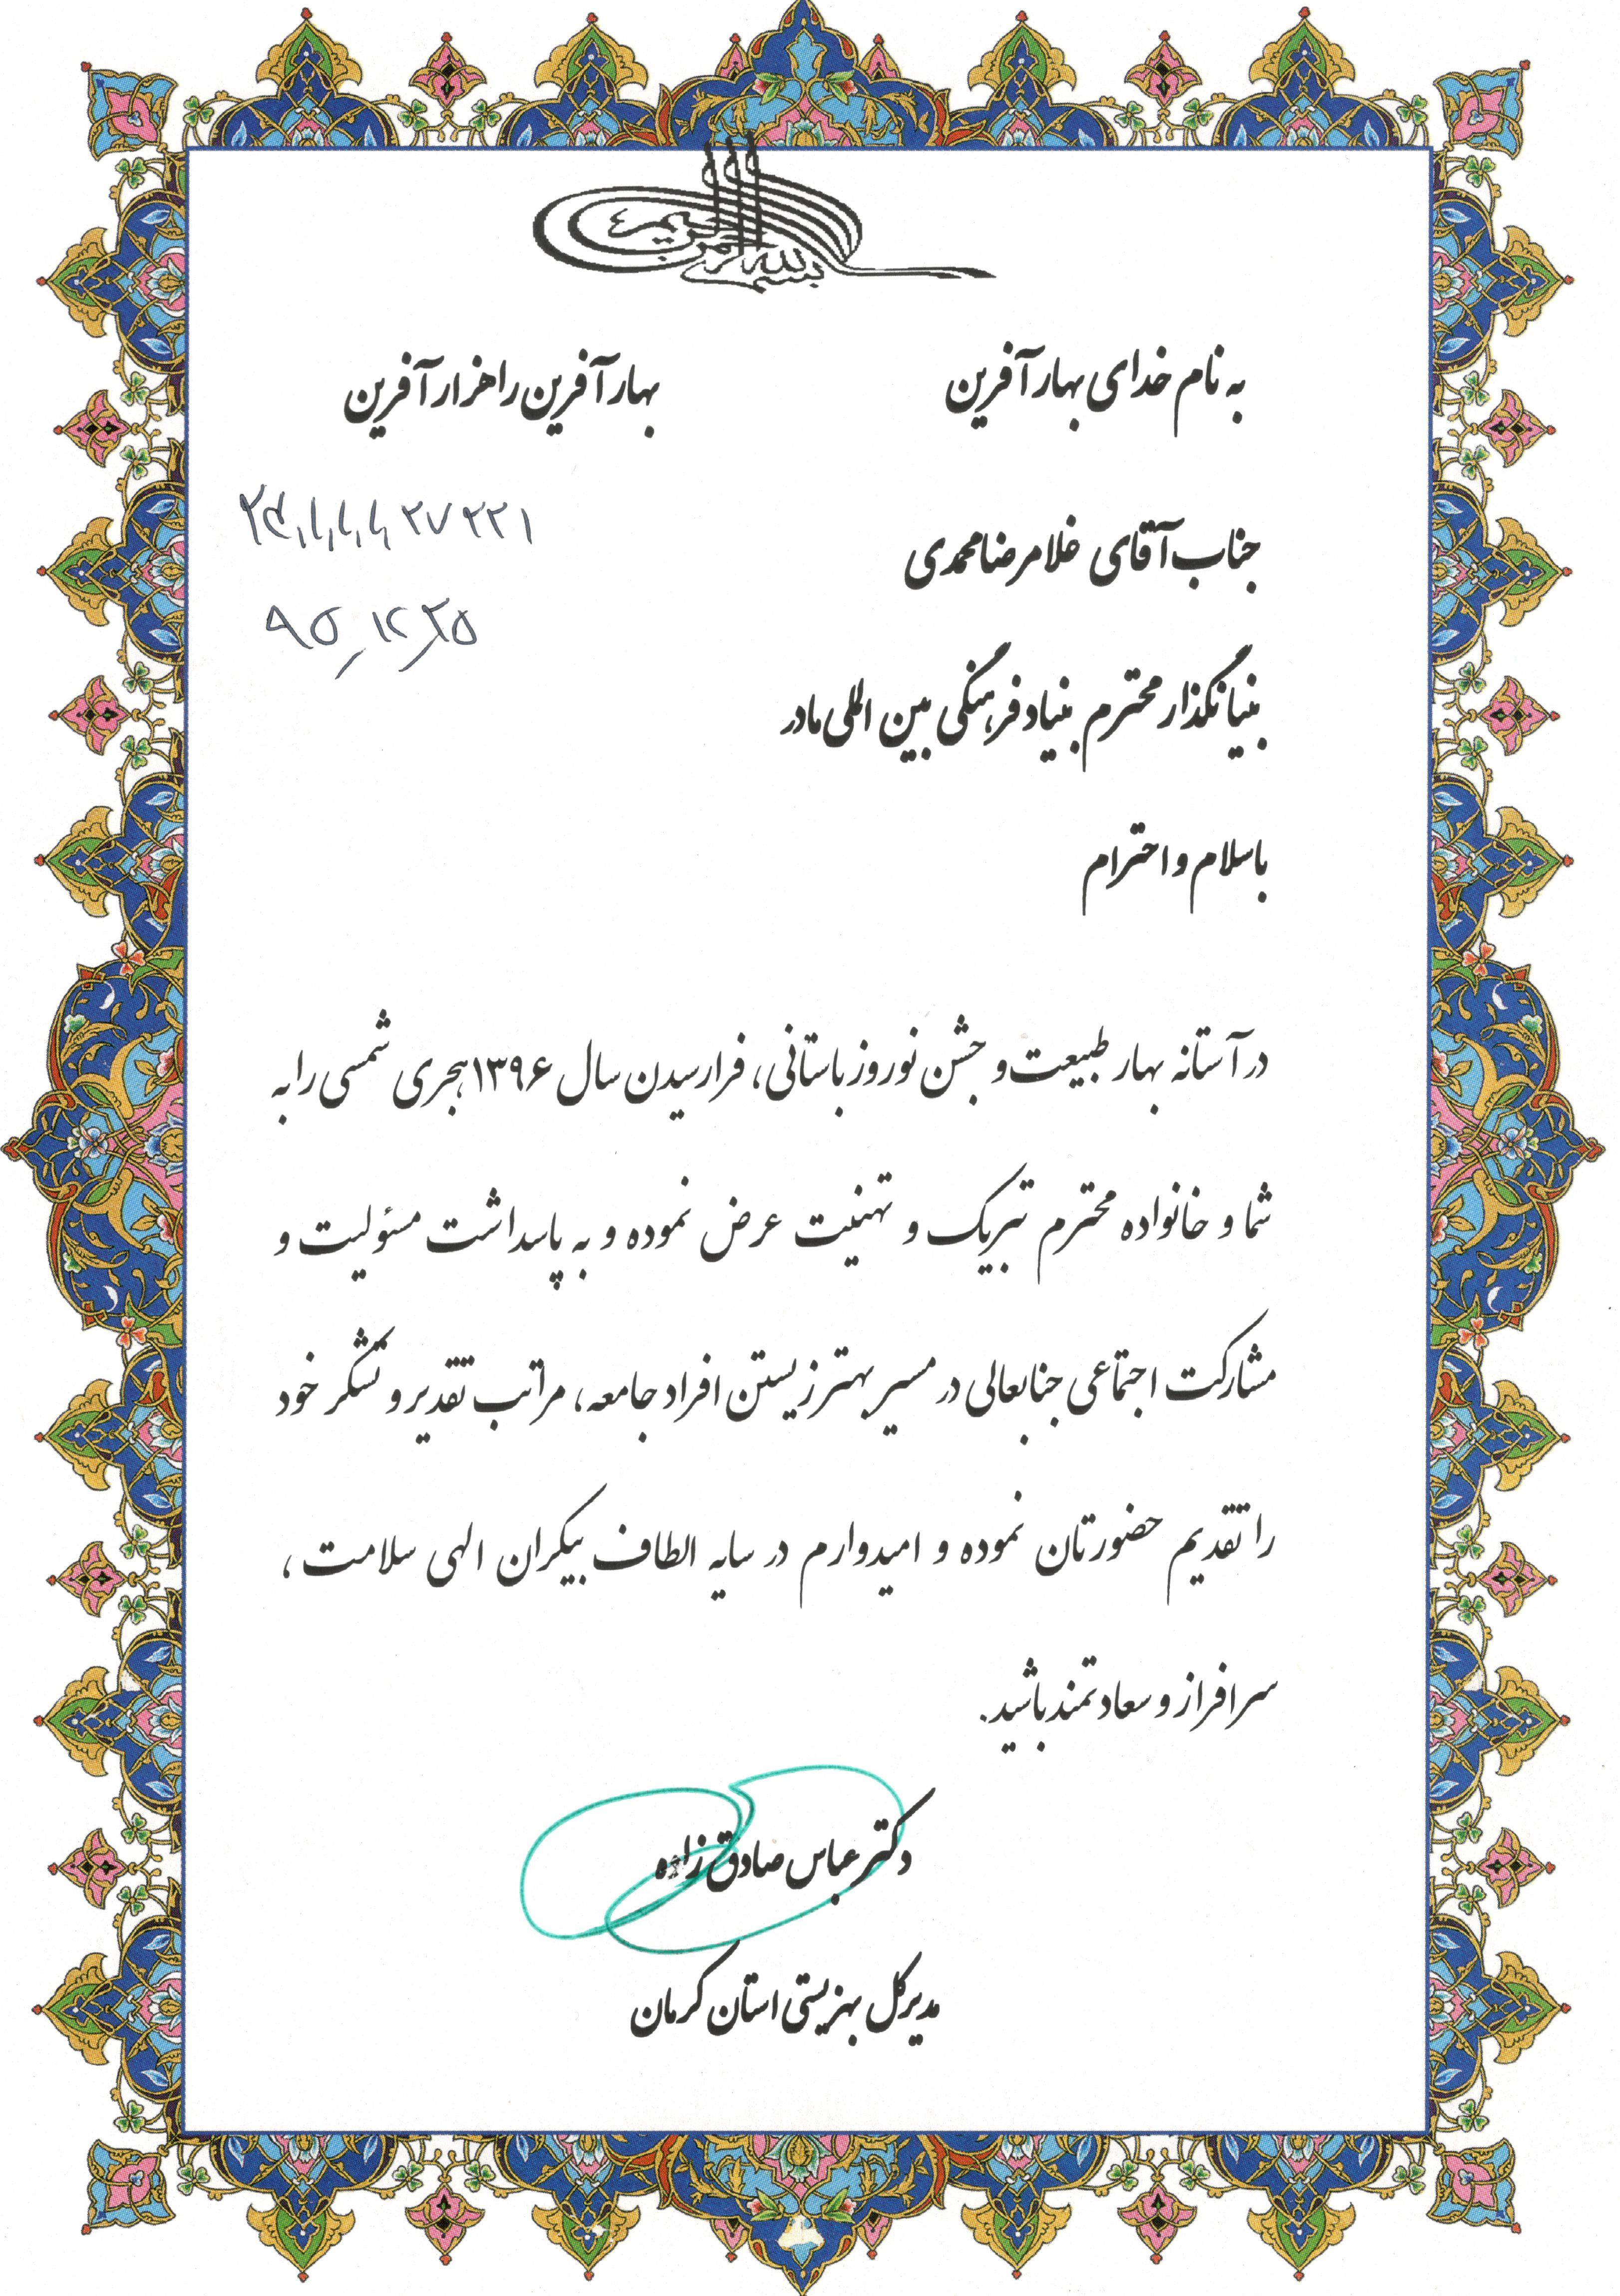 بسم الله الرحمن الرحیم
به نام خدای بهار آفرین
بهار آفرین را هزار آفرین
جناب آقای غلامرضا محمدی
۹۵_۱۲_۲۵
بنیانگذار محترم بنیاد فرهنگی بین المللی مادر
با سلام و احترام
در آستانه بهار طبیعت و جشن نوروز باستانی، فرارسیدن سال ۱۳۹۶ هجری شمسی را به
شما و خانواده محترم تبریک و تهنیت عرض نموده و به پاسداشت مسئولیت و
مشارکت اجتماعی جنابعالی در مسیر بهتر زیستن افراد جامعه، مراتب تقدیر و تشکر خود
را تقدیم حضورتان نموده و امیدوارم در سایه الطاف بیکران الهی سلامت،
سرافراز و سعادتمند باشید.
دکتر عباس صادق زاده
مدیرکل بهزیستی استان کرمان